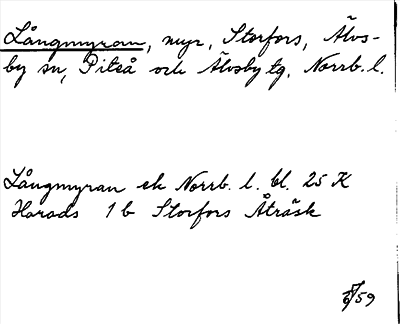 Långmyran, myr, Storfors, Älvs-
by sn, Piteå och Älvsby tg, Norrb. l.
Långmyran ek Norrb. l. bl. 25 K
Harads 1 b Storfors Åträsk